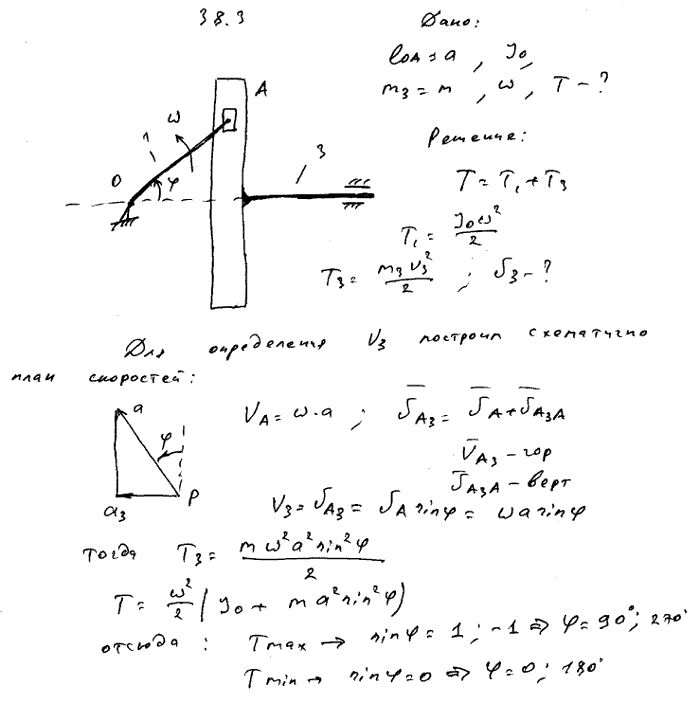 38.3
Дано:
lOA = a , J₀,
m₃ = m , ω , T - ?
Решение:
T = T₁ + T₃
T₁ = J₀ω²/2
T₃ = m₃v₃²/2 ; v₃ - ?
A
ω
1
3
O
φ
Для определения v₃ построим схематично
план скоростей:
a
φ
a₃
P
V_A = ω·a ; v̄_A₃ = v̄_A + v̄_A₃A
v̄_A₃ - гор
v̄_A₃A - верт
v₃ = v_A₃ = v_A sinφ = ωa sinφ
тогда T₃ = mω²a² sin²φ/2
T = ω²/2 (J₀ + ma² sin²φ)
отсюда : Tmax → sinφ = 1 ; -1 ⇒ φ = 90°; 270°
Tmin → sinφ = 0 ⇒ φ = 0; 180°